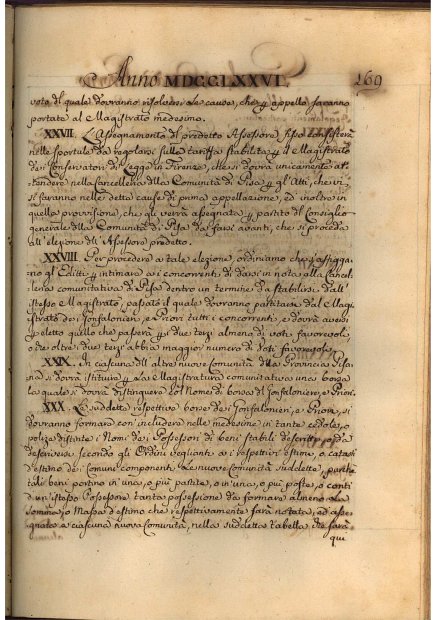 Anno MDCCLXXVI. 269
voto del quale dovranno risolversi le cause, che p appello saranno
portate al Magistrato medesimo.
XXVII. L'Assegnamento del predetto Assessore fisso consisterà
nelle sportule da regolarsi sulla tariffa stabilita p il Magistrato
de' Conservatori di Legge in Firenze, che si dovrà unicamente at-
tendere nella Cancelleria della Comunità di Pisa p gl'Atti, che in
si faranno nelle dette cause di prima appellazione, ed inoltre in
quella provvisione, che gli verrà assegnata p partito del Consiglio
generale della Comunità di Pisa da farsi avanti, che si proceda
all'elezione dell'Assessore predetto.
XXVIII. Per procedere a tale elezione, ordiniamo che si affigga-
no gl'Editti p intimare a i concorrenti di darsi in nota alla Cancel-
leria comunitativa di Pisa dentro un termine da stabilirsi dall'
istesso Magistrato, passato il quale dovranno partitarsi dal Magi-
strato de' Gonfalonieri, e Priori tutti i concorrenti, e dovrà aversi
p eletto quello che passerà p i due terzi almeno di voti favorevoli
o che oltre i due terzi abbia maggior numero di voti favorevoli.
XXIX. In ciascuna dell'altre nuove Comunità della Provincia Pisa-
na si dovrà istituire p la Magistratura comunitativa una borsa
la quale si dovrà distinguere col Nome di borsa del Gonfaloniere, e Priori.
XXX. Le suddette respettive borse de' Gonfalonieri, e Priori, si
dovranno formare con includere nelle medesime in tante cedole, o
polizze distinte i Nomi de' Possessori di beni stabili descritti, o da
descriversi secondo gli Ordini veglianti a i respettivi estimi, o catasti
d'estimo de' i Comuni componenti le nuove Comunità suddette, purche
tali beni portino in una, o più partite, o in una, o più poste, o conti
d'un'istesso Possessore tanta possessione da formare almeno la
somma, o Massa d'estimo che respettivamente sarà notata, ed asse-
gnata a ciascuna nuova Comunità, nella suddetta Tabella che sarà
qui